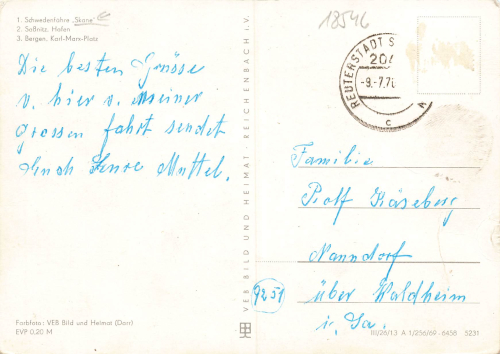 1. Schwedenfähre „Skane"
2. Saßnitz, Hafen
3. Bergen, Karl-Marx-Platz
18546
REUTERSTADT S
204
-9.-7.7
c
Die besten Grüsse
v. hier v. meiner
grossen fahrt sendet
Euch Eure Muttel.
VEB BILD UND HEIMAT REICHENBACH I.V.
Familie
Rolf Käseberg
Nanndorf
9251
über Waldheim
i. Sa.
Farbfoto: VEB Bild und Heimat (Dorr)
EVP 0,20 M
III/26/13 A 1/256/69 - 6458 5231